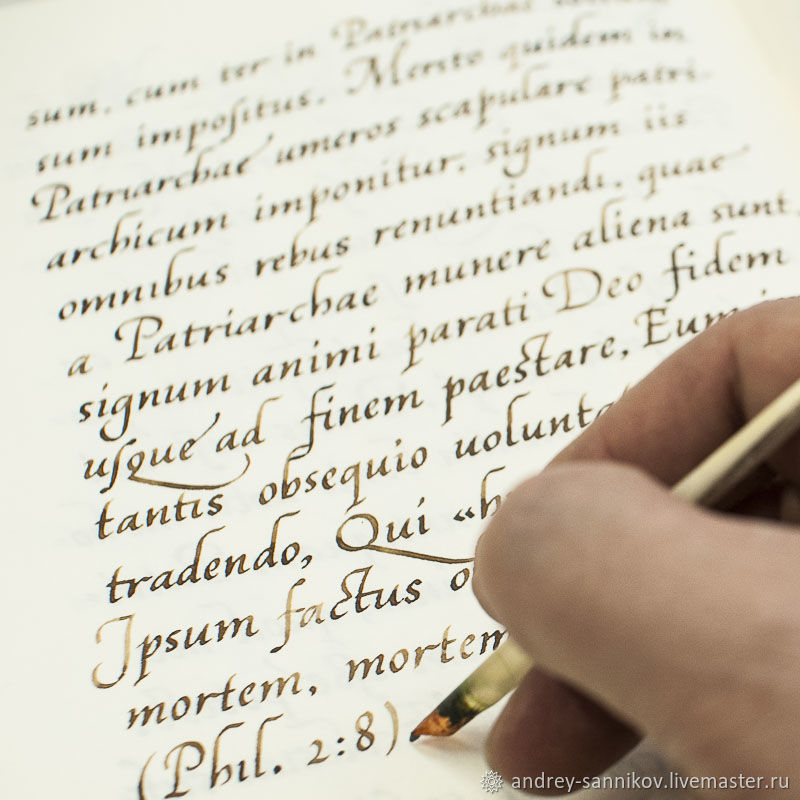 sum, cum ter in Patriarchae
sum impoſitus. Merito quidem in
Patriarchae umeros scapulare patri-
archicum imponitur, signum iis
omnibus rebus renuntiandi, quae
a Patriarchae munere aliena sunt,
signum animi parati Deo fidem
uſque ad finem paestare, Eum
tantis obsequio uolunta
tradendo, Qui «h
Ipsum factus o
mortem, mortem
(Phil. 2:8)
andrey-sannikov.livemaster.ru